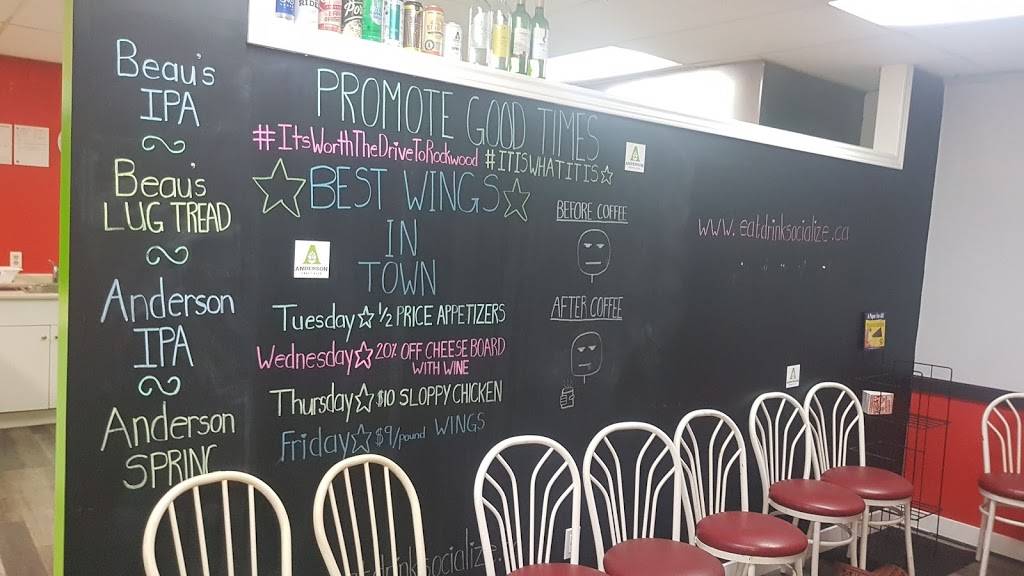 Beau's
IPA
Beau's
LUG TREAD
Anderson
IPA
Anderson
SPRING
PROMOTE GOOD TIMES
#ItsWorthTheDriveToRockwood #ITISWHATITIS
BEST WINGS
IN
TOWN
Tuesday ½ PRICE APPETIZERS
Wednesday 20% OFF CHEESE BOARD
WITH WINE
Thursday $10 SLOPPY CHICKEN
Friday $9/pound WINGS
ANDERSON
ANDERSON
BEFORE COFFEE
AFTER COFFEE
www.eatdrinksocialize.ca
eatdrinksocialize